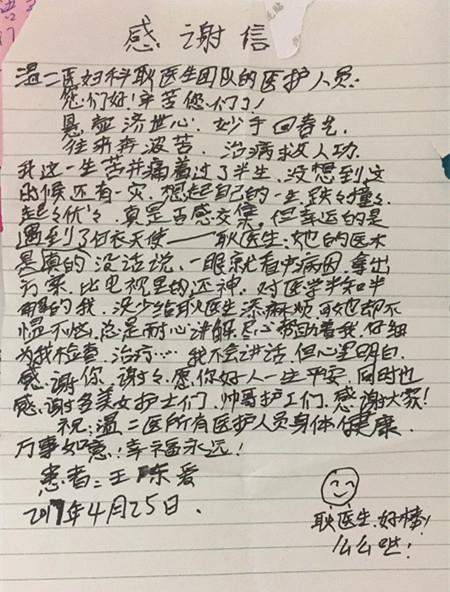 感谢信
温二医妇科耿医生团队的医护人员:
您们好!辛苦您们了!
悬壶济世心.妙手回春先.
往来奔波苦.治病救人功.
我这一生苦并痛着过了半生.没想到这
时候还有一灾.想起自己的一生.跌々撞々.
起々伏々.真是百感交集.但幸运的是
遇到了白衣天使——耿医生:她的医术
是真的没话说.一眼就看中病因.拿出
方案.比电视里的还神.对医学半知半
解的我.没少给耿医生添麻烦.可她却不
愠不恼.总是耐心讲解.尽心帮助着我.仔细
为我检查.治疗……我不会讲话.但心里明白.
感谢你.谢々.愿你好人一生平安.同时也
感谢各美女护士们.帅哥护工们.感谢大家!
祝:温二医所有医护人员身体健康.
万事如意!幸福永远!
患者:王陈爱
2017年4月25日.
耿医生.好棒!
么么哒!